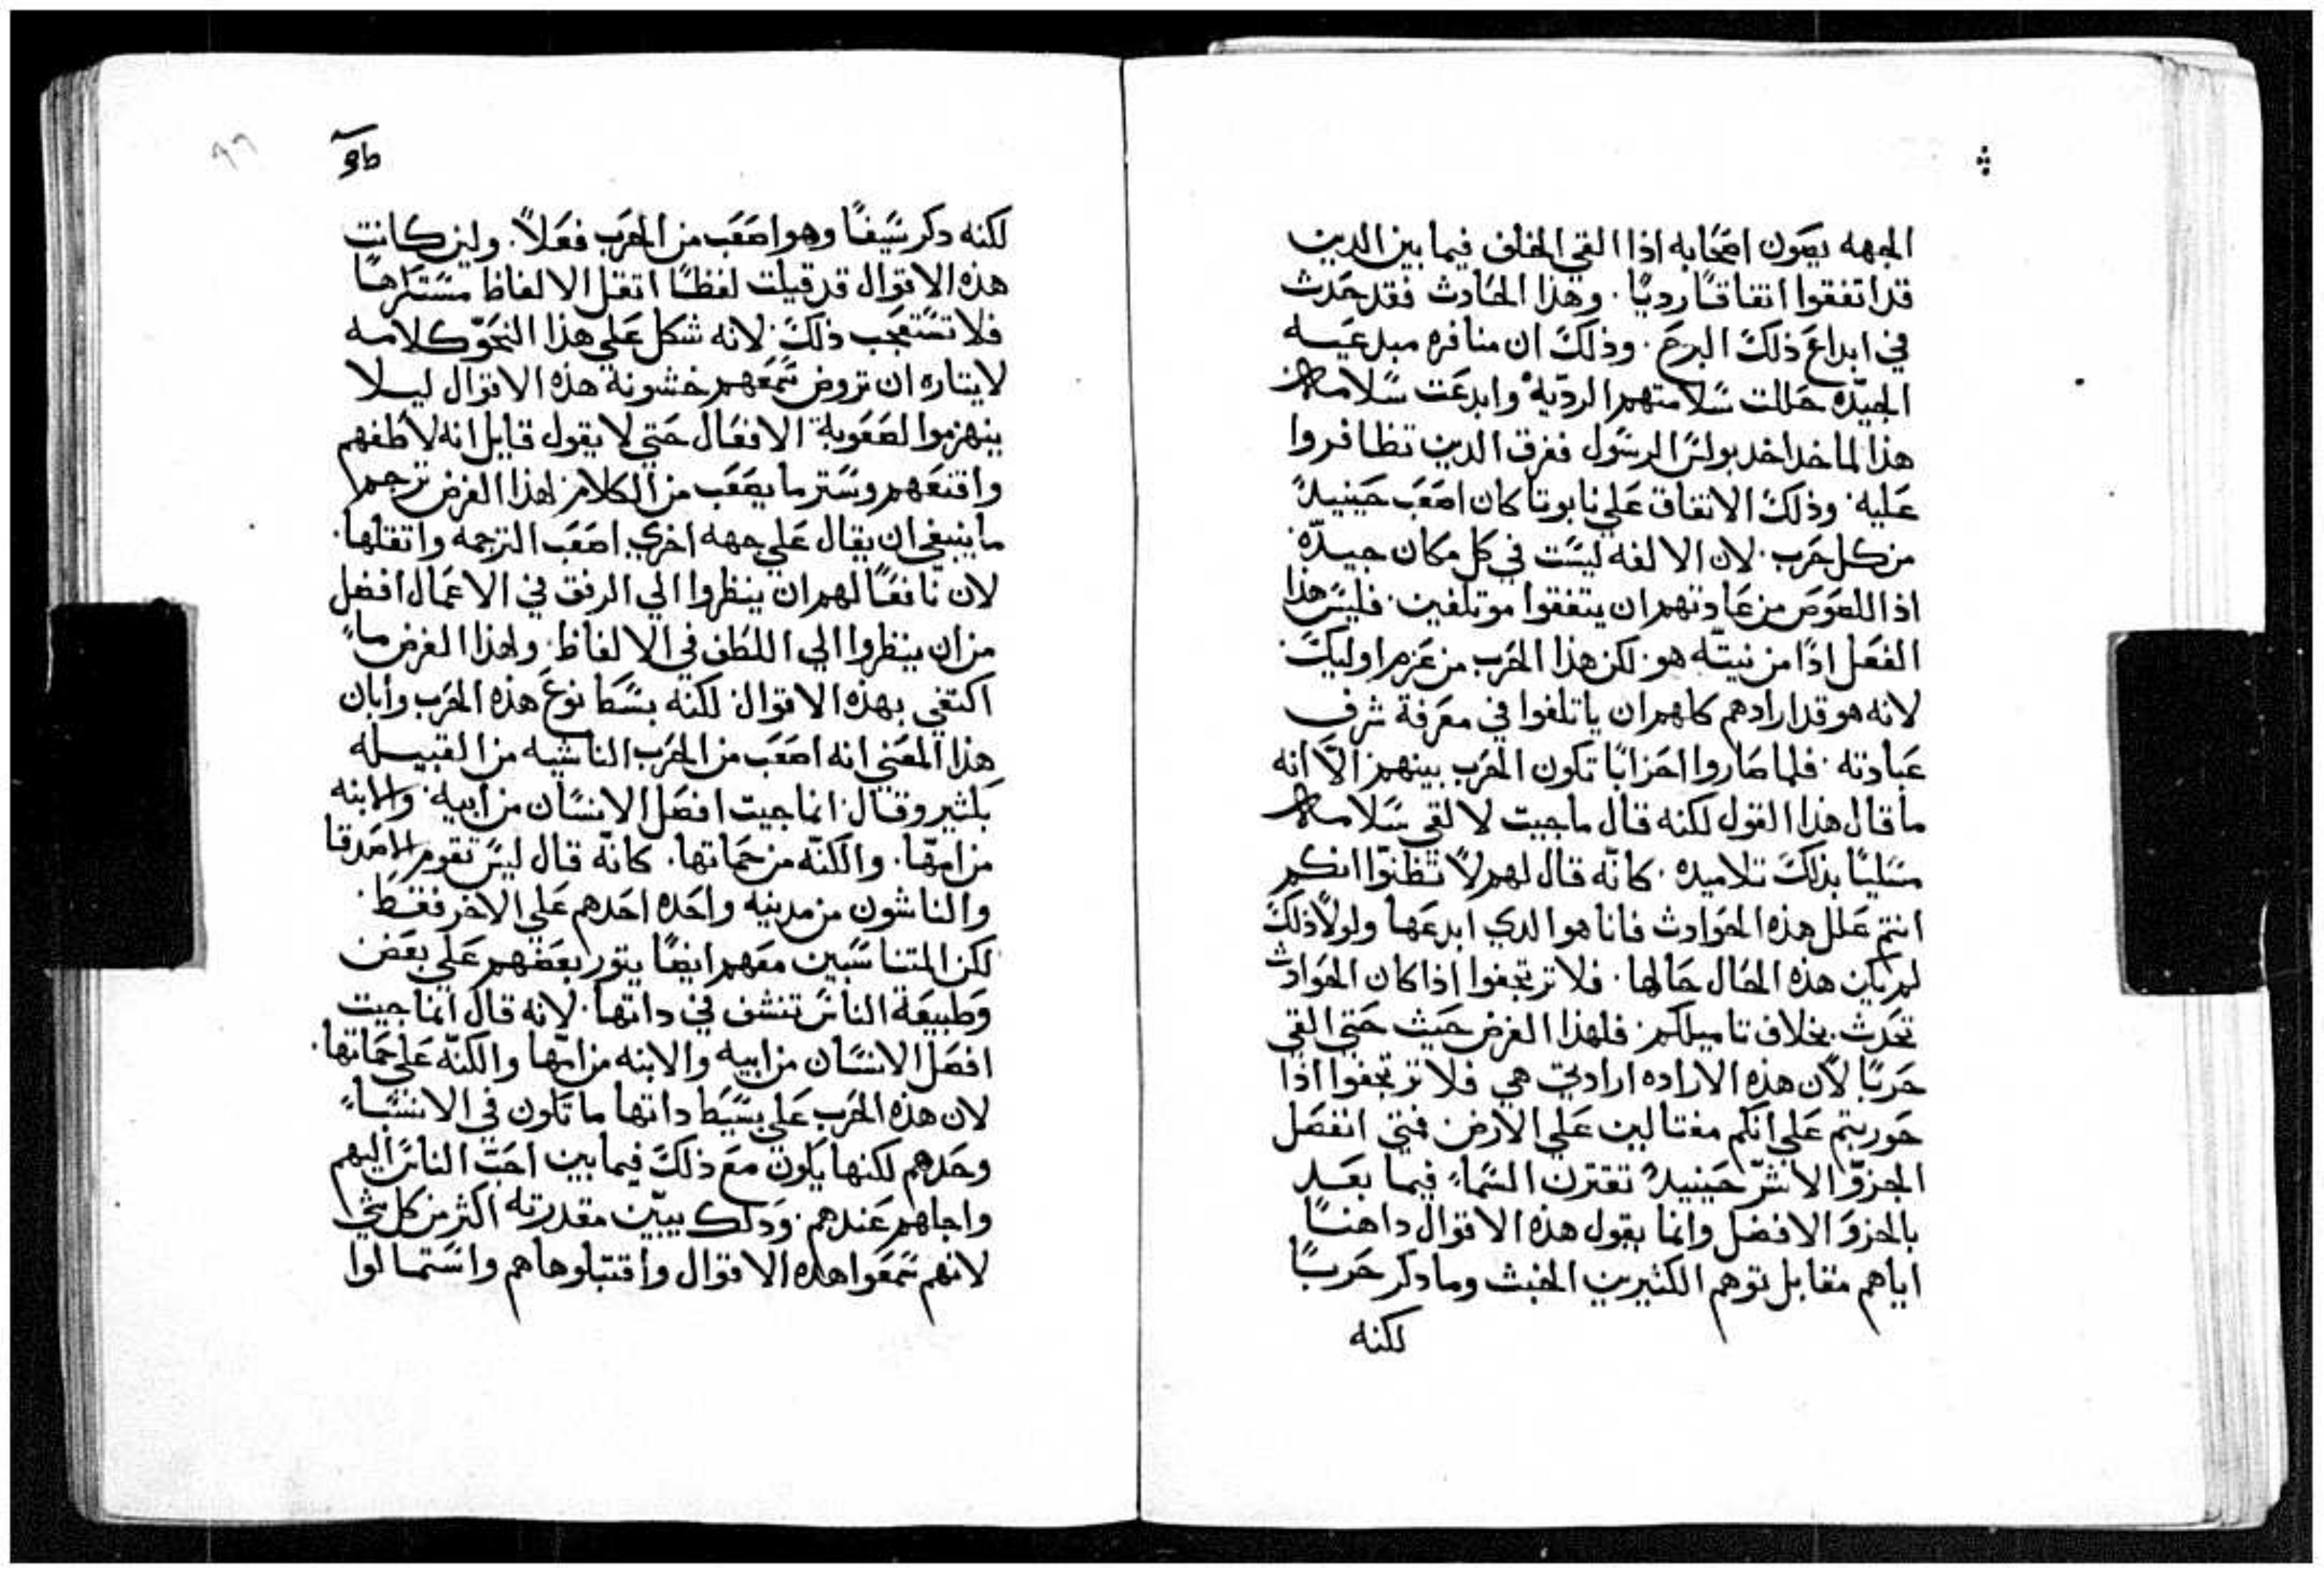 الجهه يصون اصحابه اذا القي الخلف فيما بين الدين
قد اتفقوا اتفاقاً رديًا. وهذا الحادث فقد حدث
في ابداع ذلك البرج. وذلك ان منافره مبدعيه
الجيّده حللت سلامتهم الرديّه وابدعت سلامه
هذا الماخد اخد بولس الرسول ففرق الدين تظافروا
عليه. وذلك الاتفاق علي نابوتا كان اصعب حينيدً
من كل حرب. لان الالفه ليست في كل مكان جيدّه
اذ اللصوص من عادتهم ان يتفقوا موتلفين. فليس هذا
الفعل اذًا من نيتّه هو. لكن هذا الحرب من عزم اوليك.
لانه هو قد ارادهم كلهم ان ياتلفوا في معرفة شرف
عبادته. فلما صاروا احزابًا تكون الحرب بينهم. الاّ انه
ما قال هذا القول لكنه قال ما جيت لالقي سلامه
مسليًا بذلك تلاميده. كانّه قال لهم لا تظنوّا انكم
انتم علل هذه الحوادث فانا هو الدي ابدعها ولولا ذلك
لم يكن هذه الحال حالها. فلا ترتجفوا اذا كان الحوادث
تحدث بخلاف تاميلكم. فلهذا الغرض جيت حتي القي
حربًا لان هذه الاراده ارادتي هي فلا ترتجفوا اذا
حوربتم علي انكم مغتالين علي الارض فمتي انفصل
الجزوّ الاشرّ حينيدً تقترن السماء فيما بعد
بالجزوَ الافضل وانما يقول هذه الاقوال داهنًا
اياهم مقابل توهم الكثيرين الخبث وما دكر حربًا
لكنه
لكنه دكر سيفًا وهو اصعب من الحرب فعلاً. ولين كانت
هذه الاقوال قد قيلت لفظًا اتقل الالفاظ مستكرهًا
فلا تستعجب ذلك. لانه شكل علي هذا النحوّ كلامه
لايتاره ان تروض سمعهم خشونة هذه الاقوال ليلا
ينهزموا لصعوبة الافعال حتي لا يقول قايل انه لاطفهم
واقنعهم وستر ما يصعب من الكلام. لهذا الغرض ترجم
ما ينبغي ان يقال علي جهه اخري اصعب الترجمه واتقلها.
لان نافعًا لهم ان ينظروا الي الرفق في الاعمال افضل
من ان ينظروا الي اللطف في الالفاظ. ولهذا الغرض ماء
اكتفي بهذه الاقوال. لكنه بسط نوع هذه الحرب وابان
هذا المعني انه اصعب من الحرب الناشيه من القبيله
بكثير وقال. انما جيت افصل الانسان من ابيه. والابنه
من امهّا. والكنّه من حماتها. كانّه قال ليس تقوم الاصدقا
والناشون من مدينه واحده احدهم علي الاخر فقط.
لكن المتناسبين معهم ايضًا يتور بعضهم علي بعض
وطبيعة الناس تنشق في داتها. لانه قال انما جيت
افصل الانسان من ابيه والابنه من امّها والكنّه علي حماتها.
لان هذه الحرب علي بسيط داتها ما تكون في الانسباء
وحدهم لكنها يكون مع ذلك فيما بين احبّ الناس اليهم
واجلهم عندهم. ودلك يبيّن مقدرته اكثر من كل شي
لانهم سمعوا هده الاقوال واقتبلوها هم واستمالوا